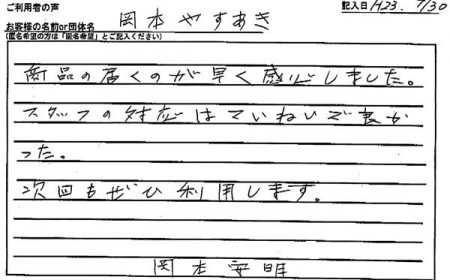 ご利用者の声
記入日 H23. 7/30
お客様の名前or団体名 岡本やすあき
(匿名希望の方は「匿名希望」とご記入ください)
商品の届くのが早く感心しました。
スタッフの対応はていねいで良か
った。
次回もぜひ利用します。
岡本安明